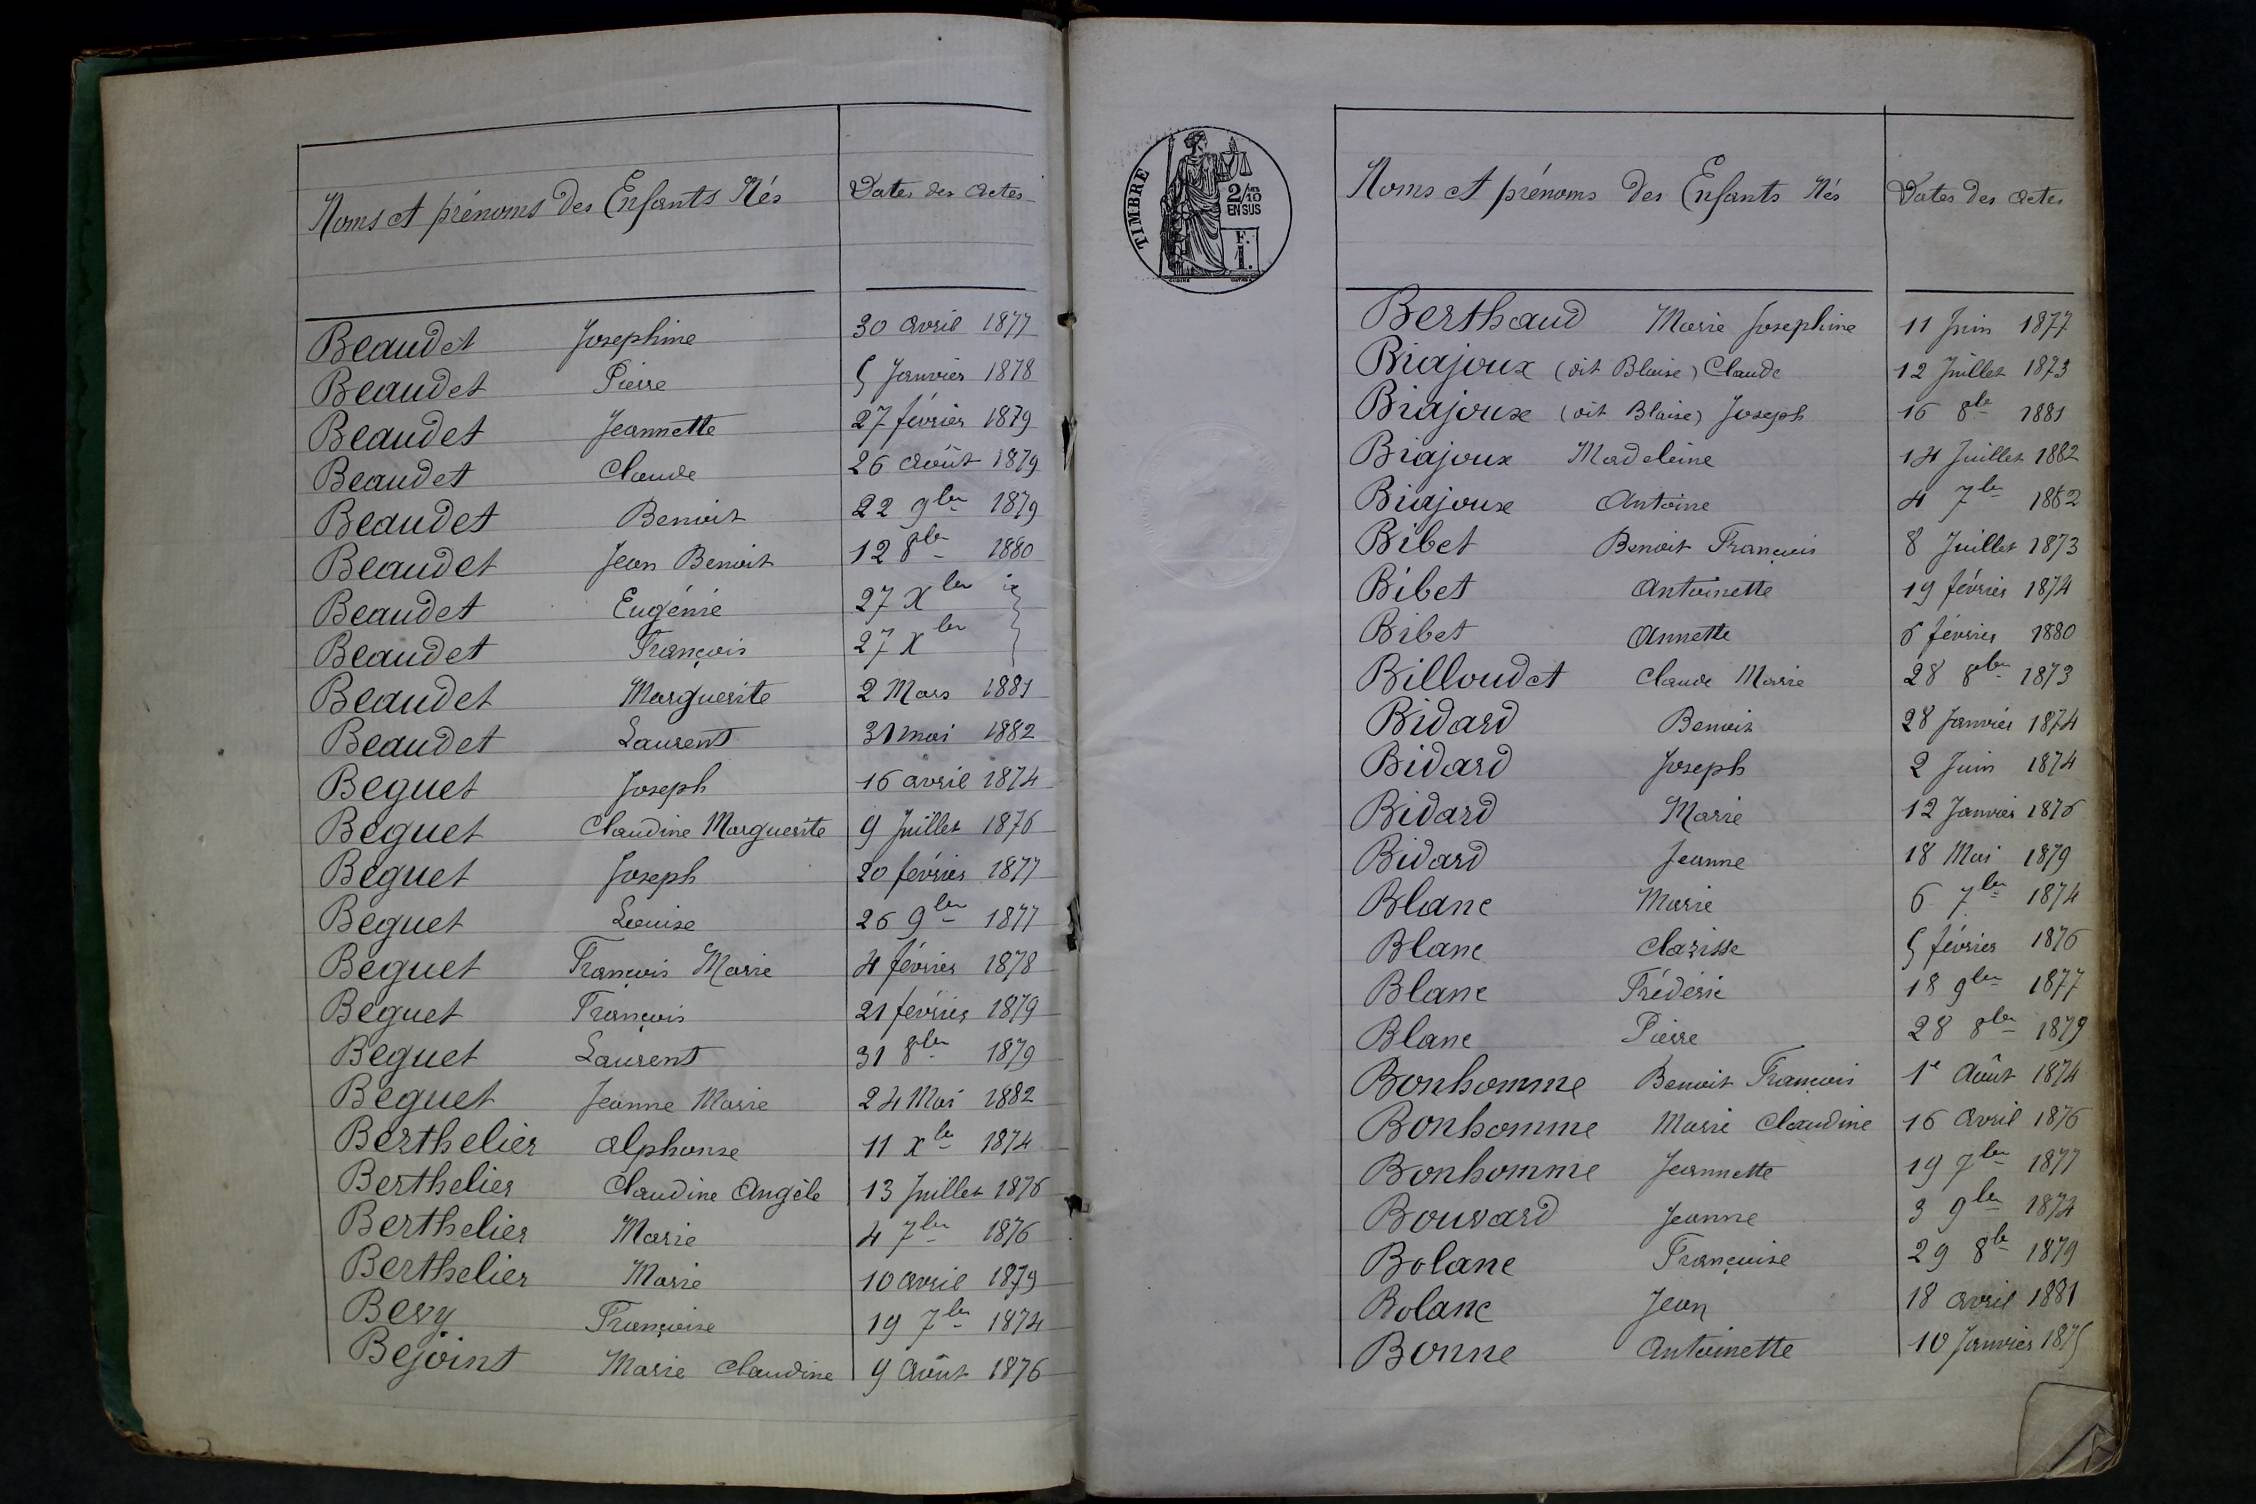 Noms et prénoms des Enfants Nés Dates des actes
Beaudet Josephine 30 avril 1877
Beaudet Pierre 5 Janvier 1878
Beaudet Jeannette 27 février 1879
Beaudet Claude 26 août 1879
Beaudet Benoit 22 9bre 1879
Beaudet Jean Benoit 12 8bre 1880
Beaudet Eugénie 27 Xbre
Beaudet François 27 Xbre
Beaudet Marguerite 2 Mars 1881
Beaudet Laurent 31 mai 1882
Beguet Joseph 16 avril 1874
Beguet Claudine Marguerite 9 Juillet 1876
Beguet Joseph 20 février 1877
Beguet Louise 26 9bre 1877
Beguet François Marie 4 février 1878
Beguet François 21 février 1879
Beguet Laurent 31 8bre 1879
Beguet Jeanne Marie 24 Mai 1882
Berthelier Alphonse 11 Xbre 1874
Berthelier Claudine Angèle 13 Juillet 1876
Berthelier Marie 4 7bre 1876
Berthelier Marie 10 avril 1879
Bevy Françoise 19 7bre 1874
Bejoint Marie Claudine 9 Août 1876
TIMBRE
2/10
EN SUS
F.
1.
Noms et prénoms des Enfants Nés Dates des actes
Berthaud Marie Josephine 11 Juin 1877
Biajoux (dit Blaise) Claude 12 Juillet 1873
Biajoux (dit Blaise) Joseph 16 8bre 1881
Biajoux Madeleine 14 Juillet 1882
Biajoux Antoine 4 7bre 1882
Bibet Benoit François 8 Juillet 1873
Bibet Antoinette 19 février 1874
Bibet Annette 6 février 1880
Billoudet Claude Marie 28 8bre 1873
Bidard Benoit 28 Janvier 1874
Bidard Joseph 2 Juin 1874
Bidard Marie 12 Janvier 1876
Bidard Jeanne 18 Mai 1879
Blanc Marie 6 7bre 1874
Blanc Clarisse 5 février 1876
Blanc Frédéric 18 9bre 1877
Blanc Pierre 28 8bre 1879
Bonhomme Benoit François 1e Août 1874
Bonhomme Marie Claudine 16 avril 1876
Bonhomme Jeannette 19 7bre 1877
Bouvard Jeanne 3 9bre 1874
Bolane Françoise 29 8bre 1879
Bolane Jean 18 avril 1881
Bonne Antoinette 10 Janvier 1875